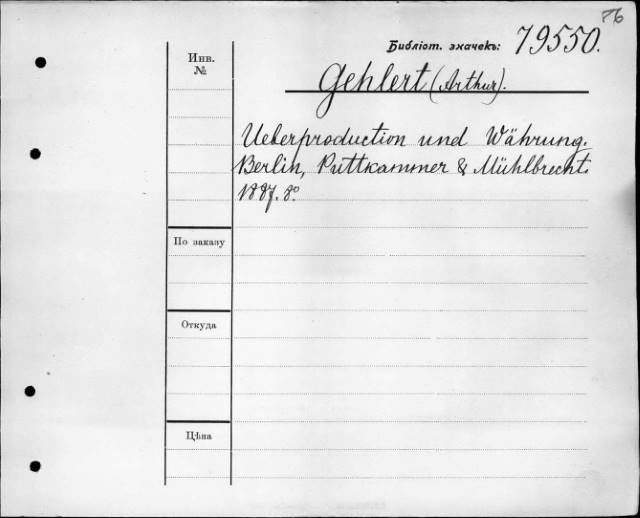 76
Библіот. значекъ: 79550.
Инв.
№
Gehlert (Arthur).
Ueberproduction und Währung.
Berlin, Puttkammer & Mühlbrecht.
1887. 8°.
По заказу
Откуда
Цѣна